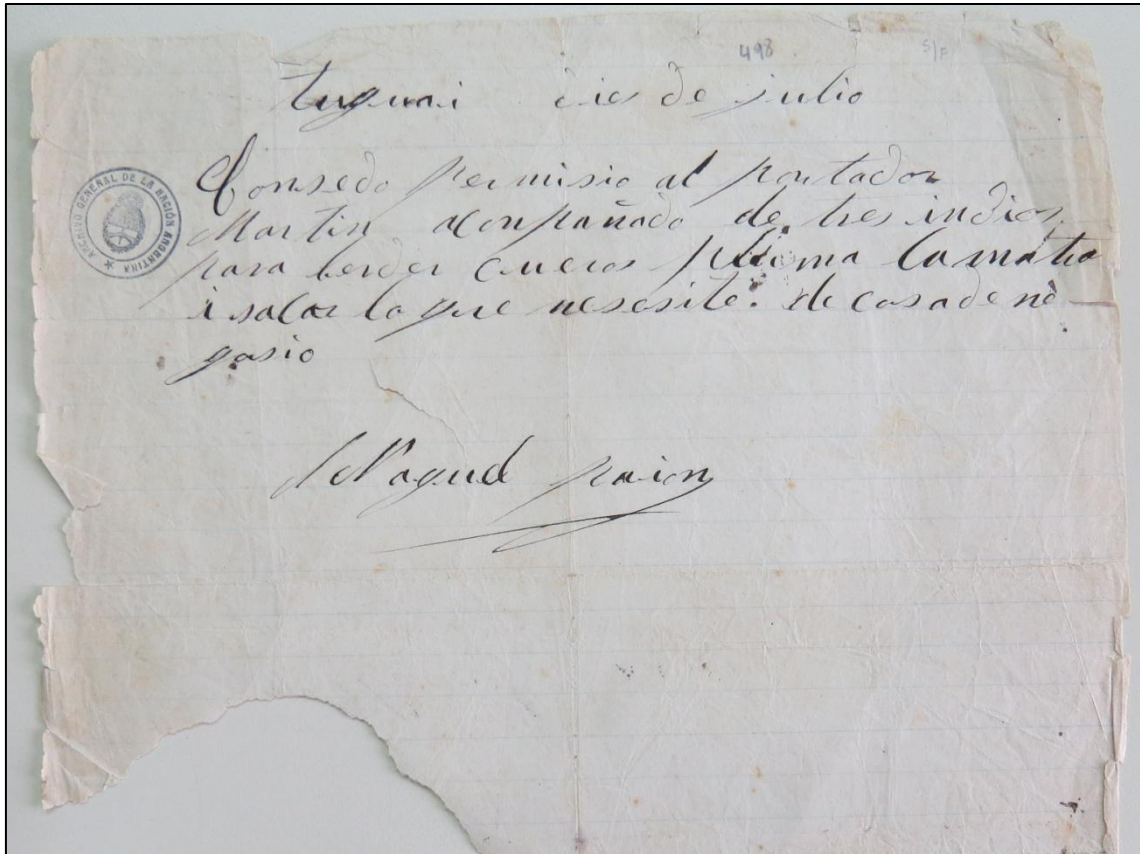 498 S/F
dies de julio
Consedo permisio al portador
Martin aconpañado de tres indios
para bender cueros pluma
i sacar lo que nesesite. de casa de ne
gosio
ARCHIVO GENERAL DE LA NACIÓN ARGENTINA